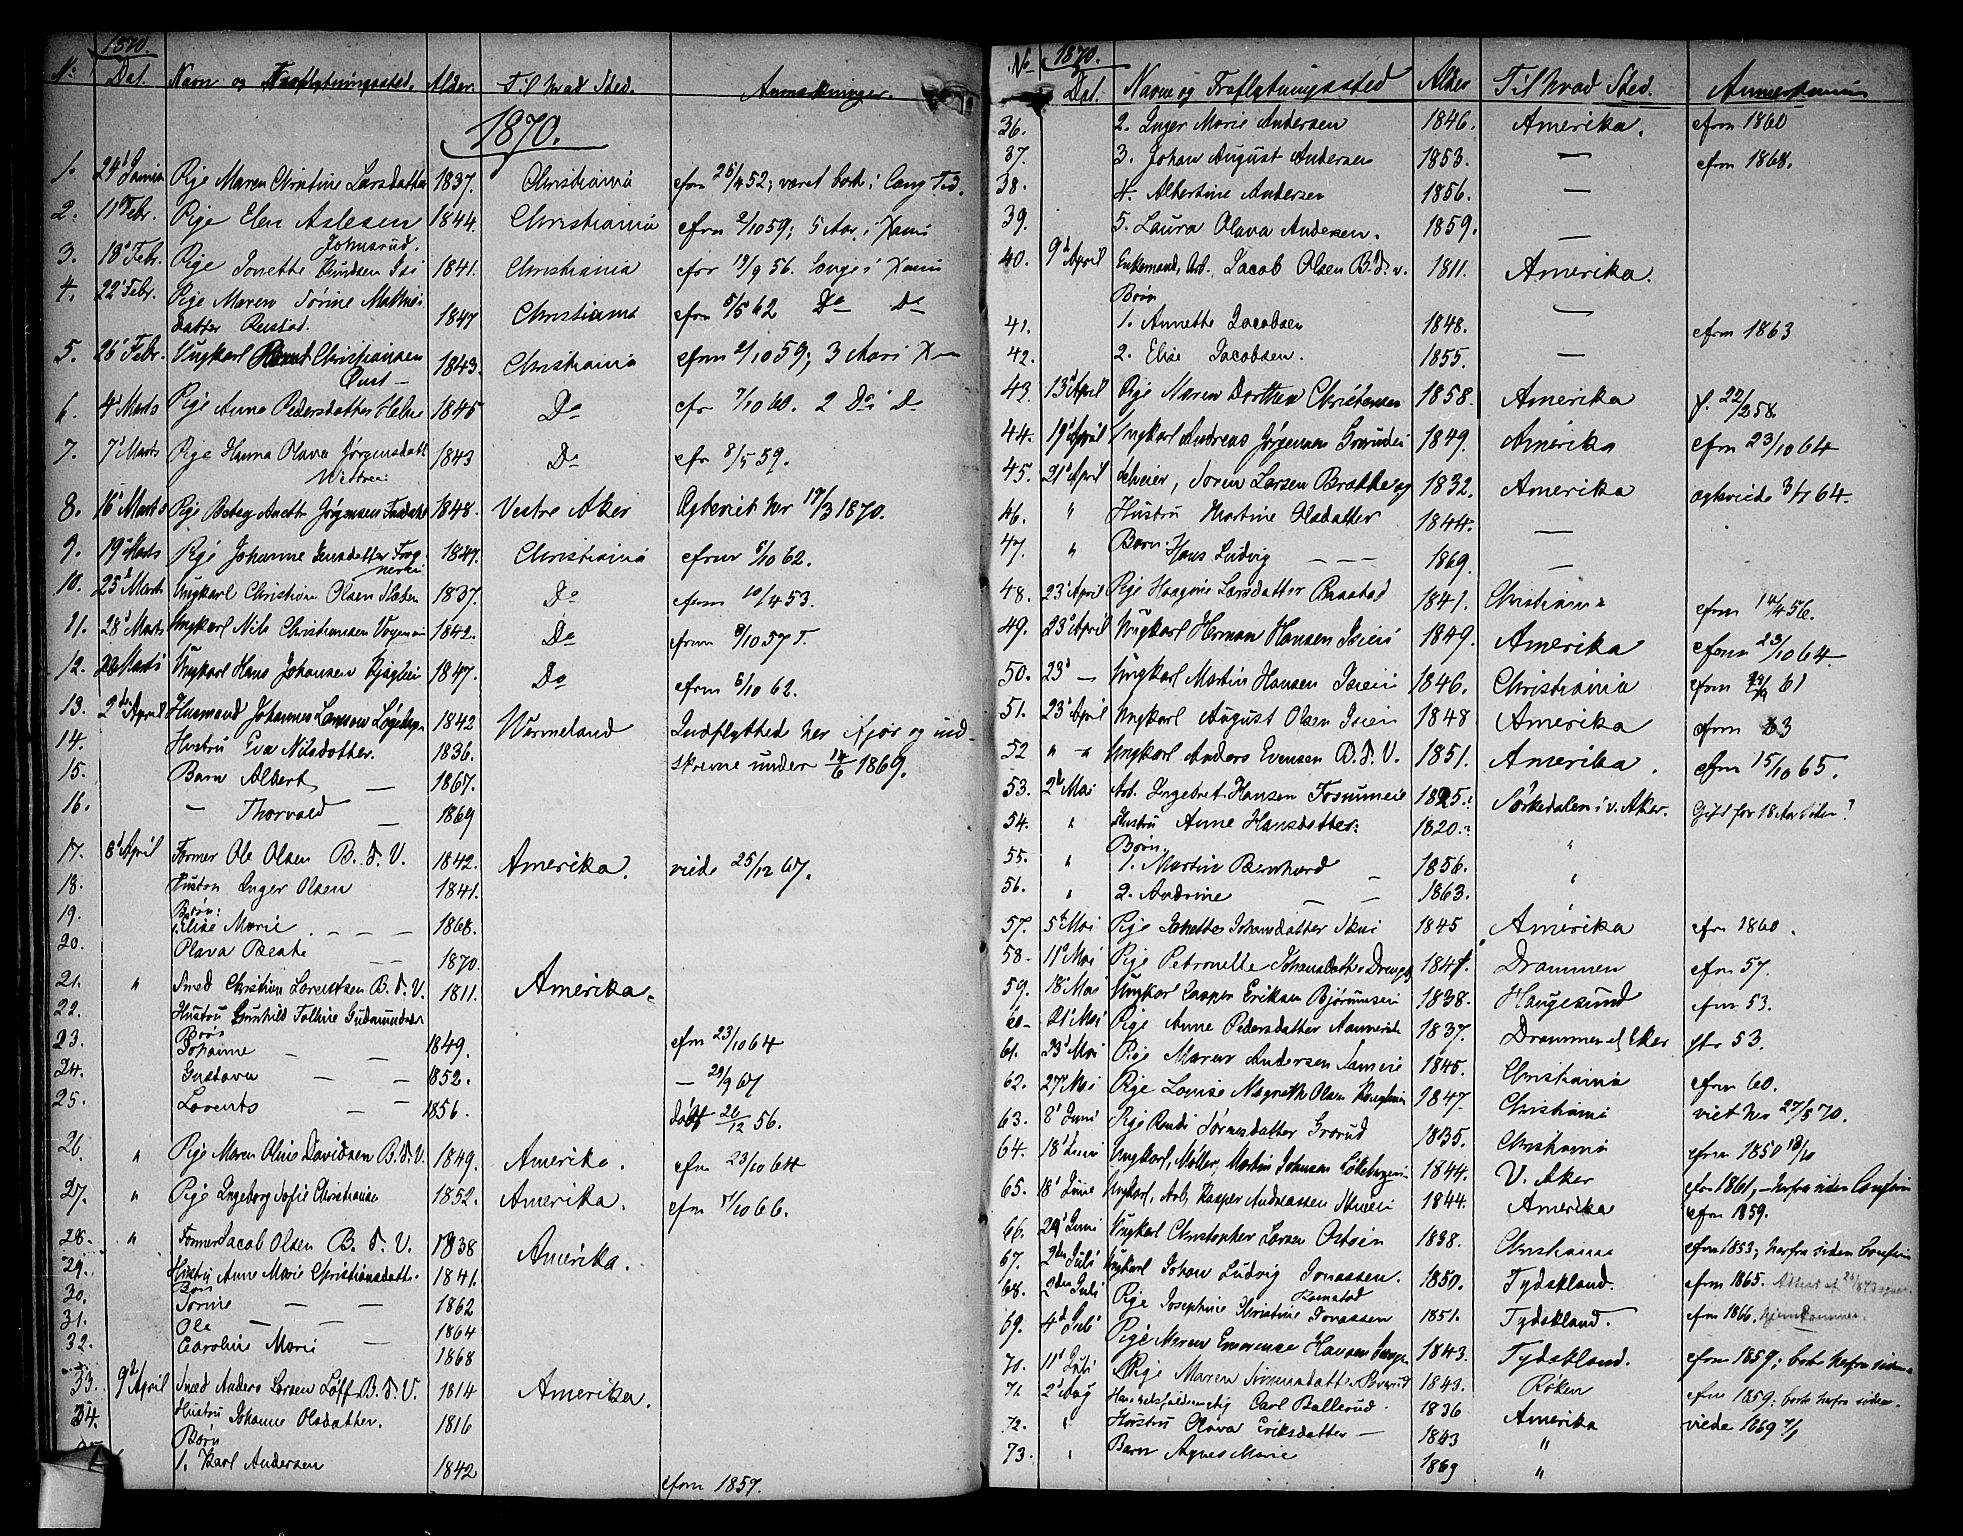 1870.
No. Dat. Navn og Fraflytningssted. Alder. Til hvad Sted. Anmærkninger.
1870.
1. 24d Pige Maren Christine Larsdatter 1837. Christiania cfrm 25/4 52; været bort i lang Tid.
2. 11 Febr. Pige Elen Aslesen 1844. Christiania cfrm 2/10 59; 5 Aar i Xania
3. 18 Febr. Pige Jonette Knudsen 1841. Christiania cfr 19/9 56. længe i Xania
4. 22 Febr. Pige Maren Torine Mathis
datter Renstad. 1847 Christiania cfrm 5/5 62 Do Do
5. 26 Febr. Ungkarl Christiansen 1843. Christiania cfrm 2/10 59; 3 Aar i Xa
6. 4 Marts Pige Anna Pedersdatter 1845 Do cfr 7/10 60. 2 Do i Do
7. 7 Marts Pige Hanna Olava Jørgensdatt 1843 Do cfr 8/5 59.
8. 16 Marts Pige Anette Jørgensen 1848. Vestre Aker Ægteviet her 17/3 1870.
9. 19 Marts Pige Johanne Jensdatter 1847. Christiania cfrm 5/10 62.
10. 25 Marts Ungkarl Christian Olsen 1837. Do cfrm 10/4 53.
11. 28 Marts Ungkarl Nils Christiansen 1842. Do cfrm 8/10 57
12. Marts Ungkarl Hans Johansen 1847. Do cfrm 5/10 62.
13. 2den April Husmand Johannes 1842 Wermeland Indflyttet her ifjor og ind-
14. Hustru Eva Nilsdatter. 1836. skreven under 14/6 1869.
15. Barn Albert — 1867.
16. — Thorvald — 1869
17. 8d April Former Ole Olsen B. F. V. 1842. Amerika. viede 25/12 67.
18. Hustru Inger Olsen 1841.
19. Børn:
Elise Marie — — — 1868.
20. Olava Beate — — 1870.
21. " Smed Christian Lorentsen B. F. V. 1811. Amerika.
22. Hustru Gunhild
23. Børn
Johanne — — 1849. cfrm 23/10 64
24. Gustava — — 1852. — 29/9 67
25. Lorents — — 1856. døbt 26/12 56.
26. " Pige Maren Oline Davidsen B. F. V. 1849. Amerika. cfrm 23/10 64
27. " Pige Ingeborg Sofie Christiansen 1852. Amerika. cfrm 7/10 66.
28. " Former Jacob Olsen B. F. V. 1838 Amerika.
29. Hustru Anne Marie Christiansdatt. 1841.
30. Børn
Torine — — 1862
31. Ole — — 1864
32. Caroline Marie 1868
33. 9d April Smed Anders Larsen Løff B. F. V. 1814 Amerika.
34. Hustru Johanne Olsdatter. 1816
Børn
1. Karl Andersen 1842 cfrm 1857.
No. 1870.
Dat. Navn og Fraflytningssted Alder Til hvad Sted.
36. 2. Inger Marie Andersen 1846. Amerika. cfrm 1860
37. 3. Johan August Andersen 1853. — cfrm 1868.
38. 4. Albertine Andersen 1856. —
39. 5. Laura Olava Andersen. 1859. —
40. 9d April Enkemand, Arb. Jacob Olsen B. F. V. 1811. Amerika.
Børn
41. 1. Annette Jacobsen 1848. — cfrm 1863
42. 2. Elise Jacobsen. 1855. —
43. 13 April Pige Maren Dorthea Christensen 1858. Amerika f. 22/2 58.
44. 19 April Ungkarl Andreas Jørgensen 1849. Amerika cfrm 23/10 64
45. 21 April Leleier, Soren Larsen Bratteng 1832. Amerika ægteviede 3/7 64.
46. " Hustru Martine Olsdatter 1844. —
47. " Barn Hans Ludvig — — 1869. —
48. 23 April Pige Larsdatter 1841. Christiania cfrm 14/4 56.
49. 23 April Ungkarl Herman Hansen Isiei 1849. Amerika cfrm 23/10 64.
50. 23 — Ungkarl Martin Hansen Isiei 1846. Christiania cfrm 61
51. 23 April Ungkarl August Olsen Isiei 1848 Amerika cfrm 63
52 " " Ungkarl Anders Evensen B. F. V. 1851. Amerika. cfrm 15/10 65.
53. 2 Mai Arb. Ingebret Hansen Fossumeie 1825. Sørkedalen i v. Aker. Gift for 18 Aar siden?
54. " Hustru Anne Hansdatter. 1820.
Børn
55. " 1. Martin Bernhard — 1856. "
56. " 2. Andrine — — 1863. "
57. 5 Mai Pige Johansdatter Skui 1845 Amerika cfr 1860.
58. 11 Mai Pige Petronelle Johansdatter 1841. Drammen cfrm 57.
59. 18 Mai Ungkarl Casper Eriksen 1838. Haugesund cfrm 53.
60. 21 Mai Pige Anne Pedersdatter 1837. Drammen ell. Eker cfr 53.
61. 23 Mai Pige Maren Andersen 1845. Christiania cfrm 60.
62. 27 Mai Pige Lovise Magrethe Olsen 1847. Christiania viet her 27/5 70.
63. 8 Juni Pige Randi 1835. Christiania cfrm 1850
64. 18 Juni Ungkarl, Møller, Martin Johnsen 1844. V. Aker cfr 1861, — herfra siden
65. 18 June Ungkarl, Arb. Kasper Andreassen 1844. Amerika cfrm 1859.
66. 29 Juni Ungkarl Christopher Larsen 1838. Christiania cfrm 1853; herfra siden
67. 2den Juli Ungkarl Johan Ludvig Jonassen. 1850. Tydskland. cfrm 1865.
68. 2den Juli Pige Josephine Christine Jonassen 1851. Tydskland. cfrm 1866. hjemkommen.
69. 4d Juli Pige Maren Emerense Hansen 1843. Tydskland. cfrm 1859; borte herfra siden
70. 11 Juli Pige Maren 1843. Røken cfrm 1859: borte herfra siden.
71. 2 Aug Carl Ballerud. 1836 Amerika viede 1869
72. " Hustru Olava Eriksdatter — 1843 "
73. " Barn Agnes Marie 1869 "